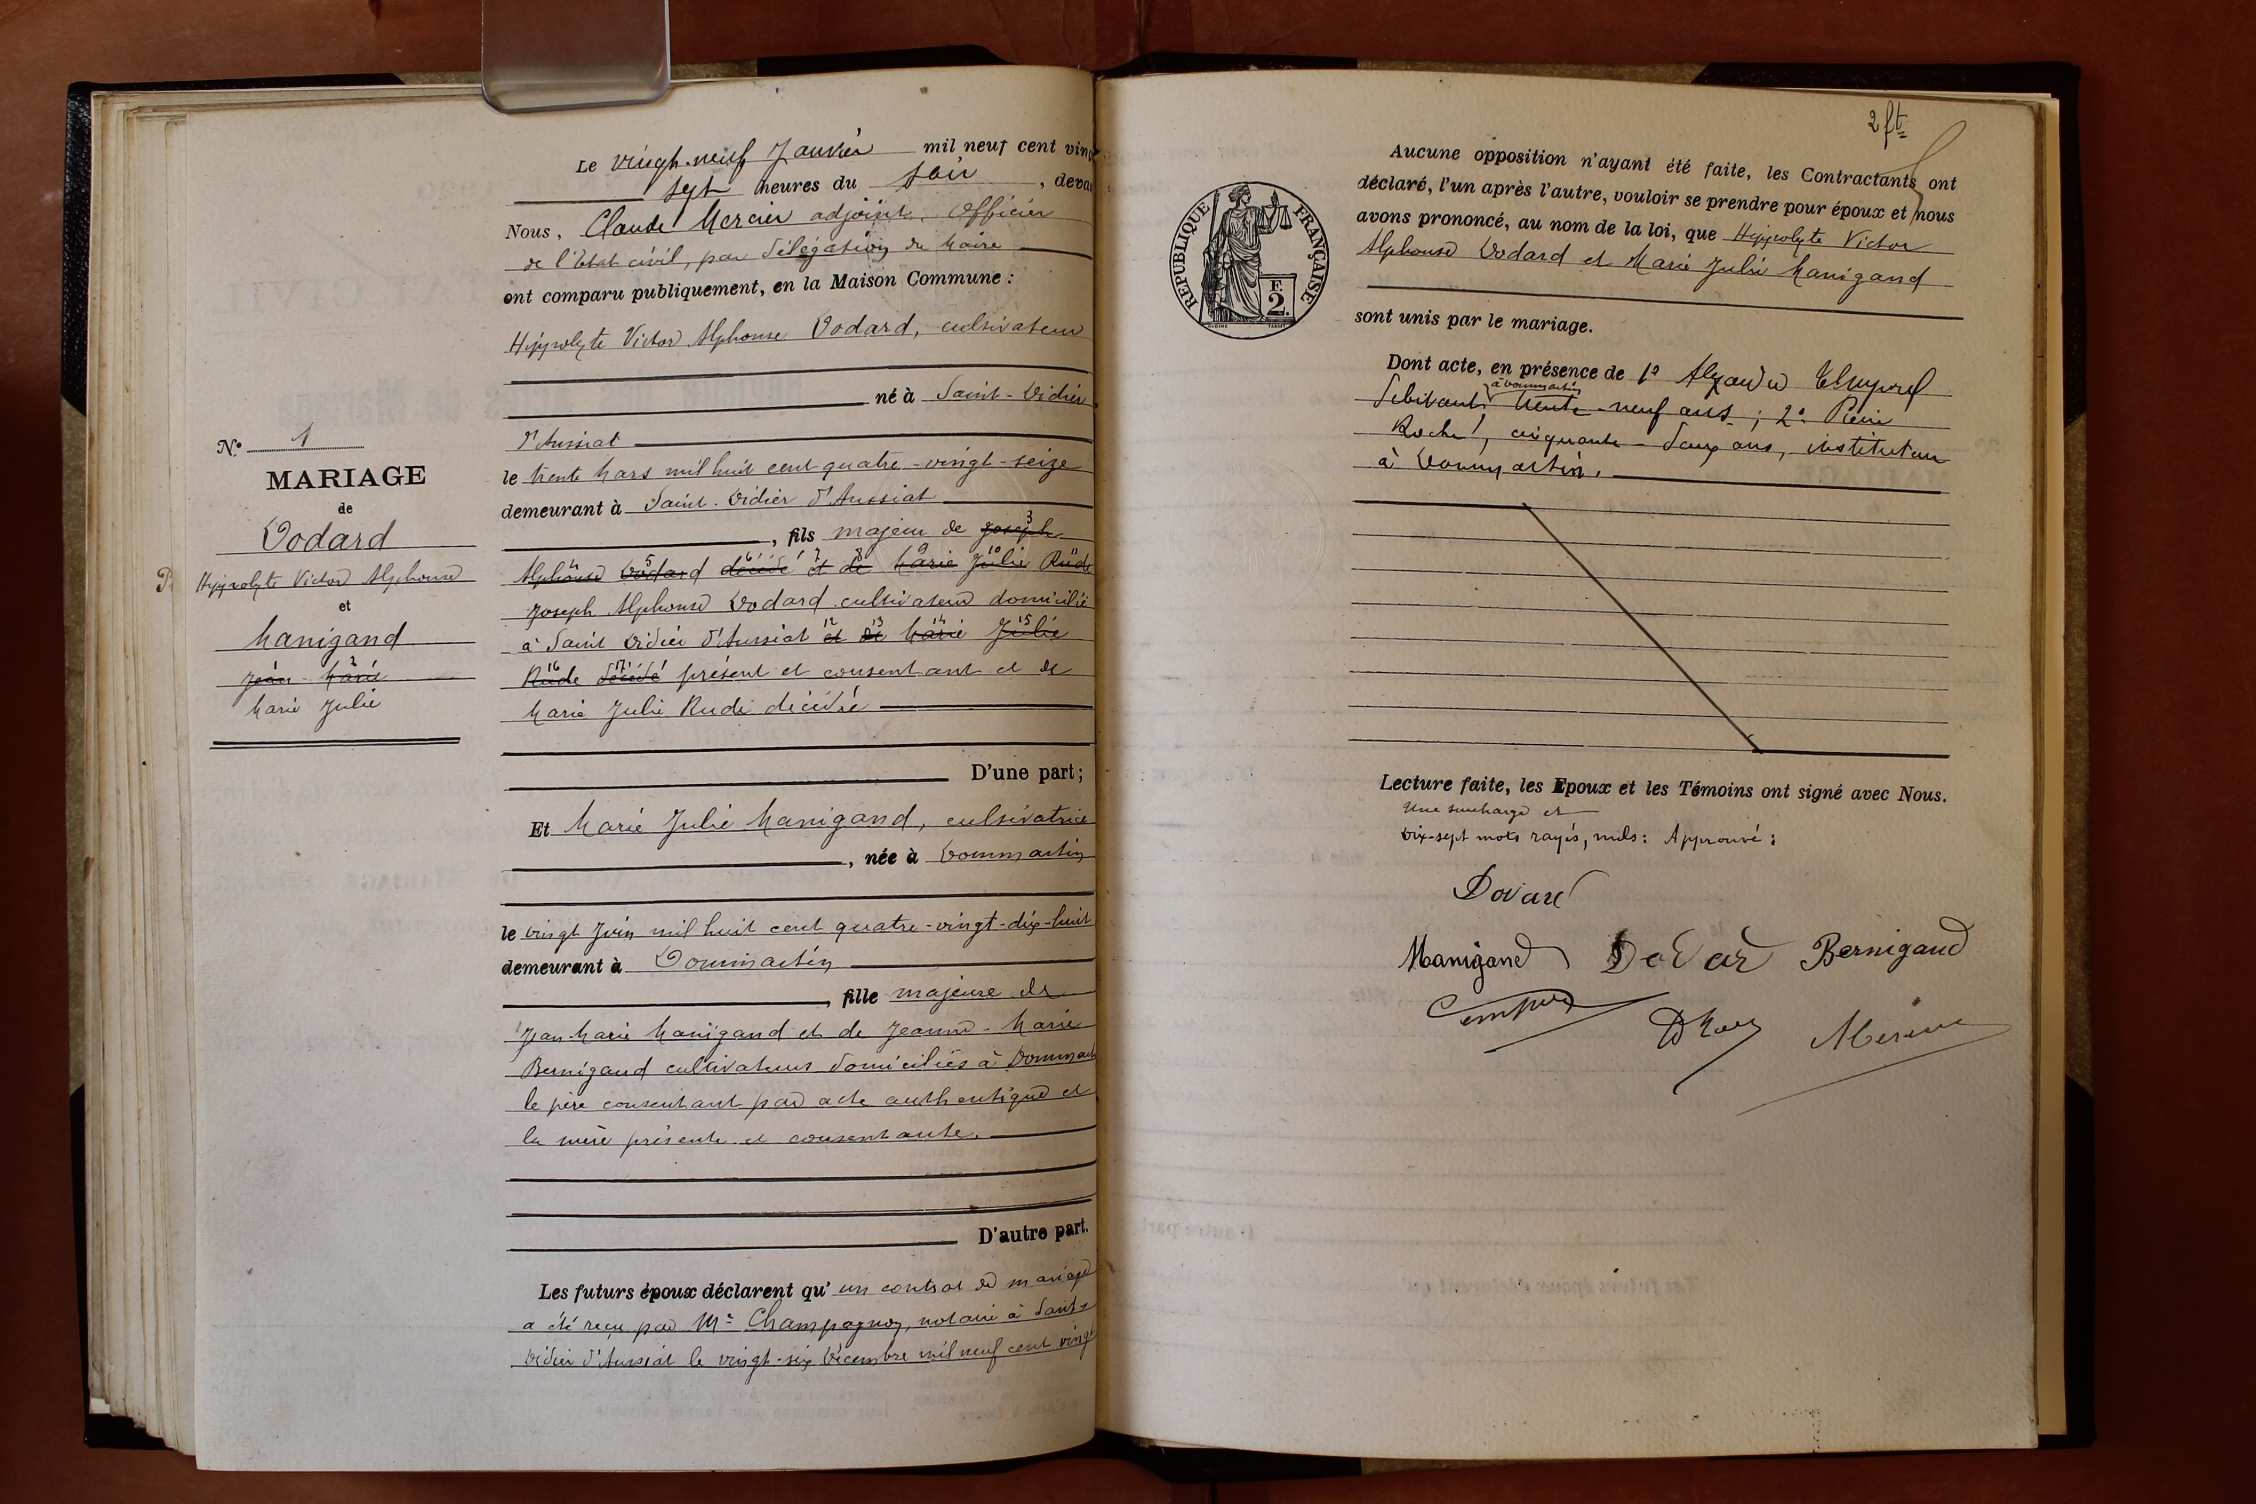 Le vingt-neuf Janvier mil neuf cent ving
sept heures du soir, deva
Nous, Claude Mercier adjoint, Officier
de l'Etat civil, par délégation du Maire
ont comparu publiquement, en la Maison Commune :
Hippolyte Victor Alphonse Dodard, cultivateur
né à Saint-Didier
d'Aussiat
le trente Mars mil huit cent quatre-vingt-seize
demeurant à Saint-Didier d'Aussiat
, fils majeur de Joseph 3
Alphonse 4 Dodard 5 décédé 6 et 7 de 8 Marie 9 Julie 10 Rude 11
Joseph Alphonse Dodard cultivateur domicilié
à Saint Didier d'Aussiat et 12 de 13 Marie 14 Julie 15
Rude 16 décédé 17 présent et consentant et de
Marie Julie Rude décédée
D'une part ;
Et Marie Julie Manigand, cultivatrice
, née à Dommartin
le vingt Juin mil huit cent quatre-vingt-dix-huit
demeurant à Dommartin
, fille majeure de
Jean-Marie Manigand et de Jeanne-Marie
Bernigaud cultivateurs domiciliés à Dommart
le père consentant par acte authentique et
la mère présente et consentante.
D'autre part.
Les futurs époux déclarent qu' un contrat de mariage
a été reçu par Me Champagnon, notaire à Saint-
Didier d'Aussiat le vingt-six Décembre mil neuf cent vingt
N° 1
MARIAGE
de
Dodard
Hippolyte Victor Alphonse
et
Manigand
Jean Marie 2
Marie Julie
2 ft
RÉPUBLIQUE FRANÇAISE
F. 2.
Aucune opposition n'ayant été faite, les Contractants ont
déclaré, l'un après l'autre, vouloir se prendre pour époux et nous
avons prononcé, au nom de la loi, que Hippolyte Victor
Alphonse Dodard et Marie Julie Manigand
sont unis par le mariage.
Dont acte, en présence de 1° Alexandre
à Dommartin
débitant trente-neuf ans ; 2° Pierre
Roche, cinquante-deux ans, instituteur
à Dommartin.
Lecture faite, les Epoux et les Témoins ont signé avec Nous.
Une surcharge et
Dix-sept mots rayés, nuls : Approuvé :
Manigand Bernigaud